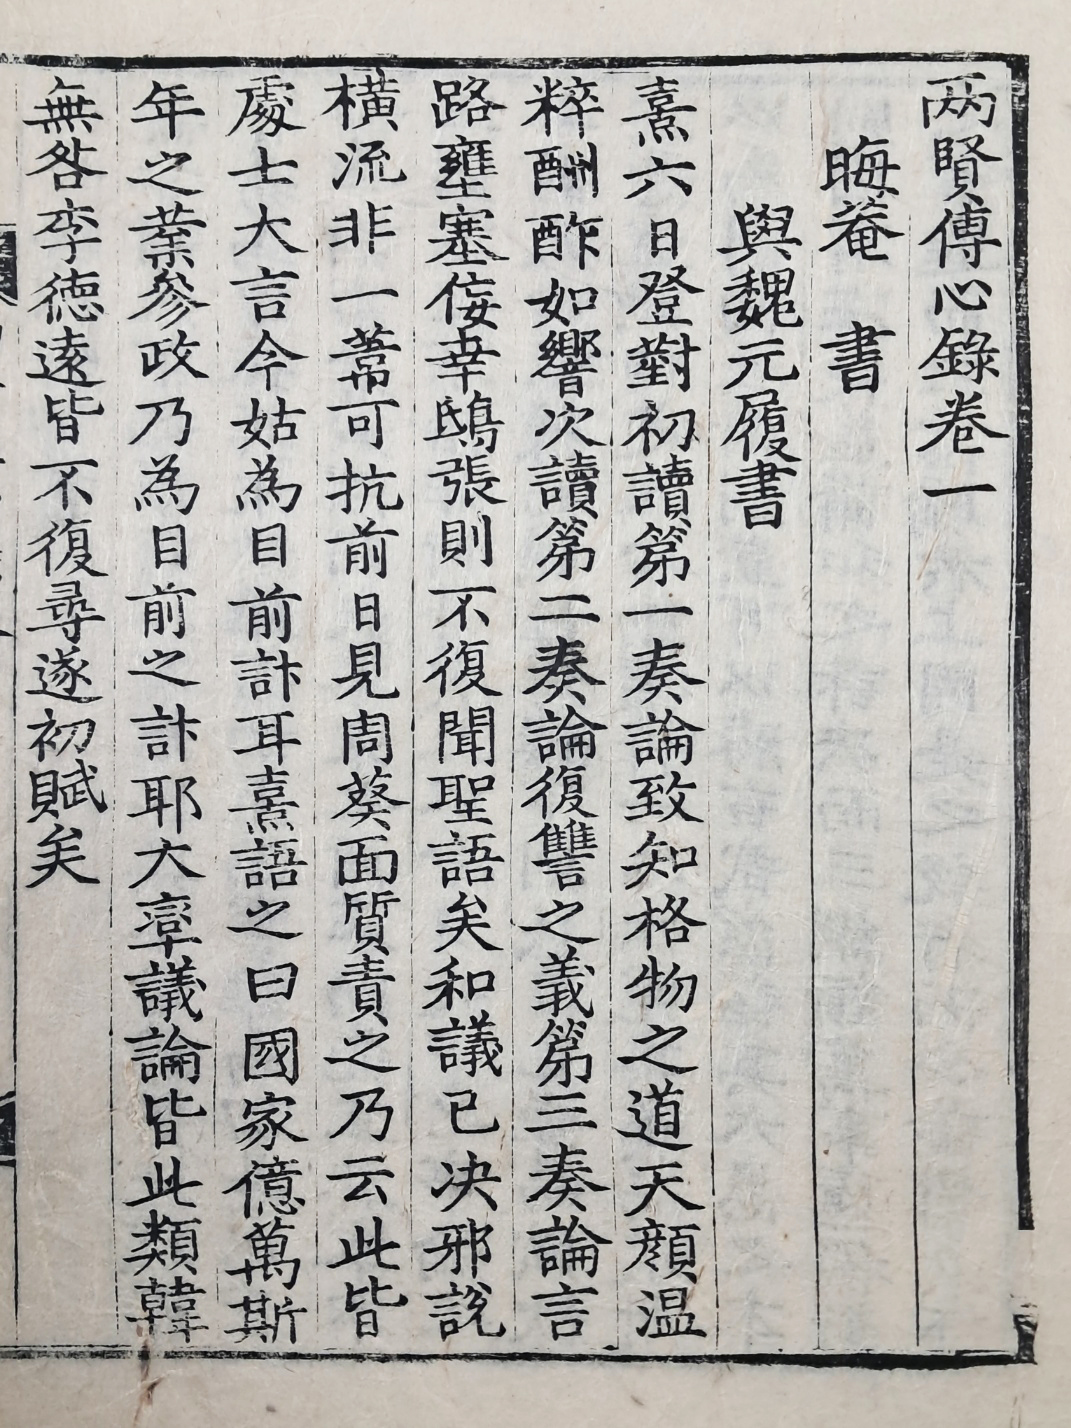 两賢傳心錄卷一
晦菴 書
與魏元履書
熹六日登對初讀第一奏論致知格物之道天顔温
粹酬酢如響次讀第二奏論復讐之義第三奏論言
路壅塞侫幸鴟張則不復聞聖語矣和議已决邪說
橫流非一葦可抗前日見周葵面質責之乃云此皆
處士大言今姑為目前計耳熹語之曰國家億萬斯
年之業參政乃為目前之計耶大率議論皆此類韓
無咎李德遠皆不復尋遂初賦矣